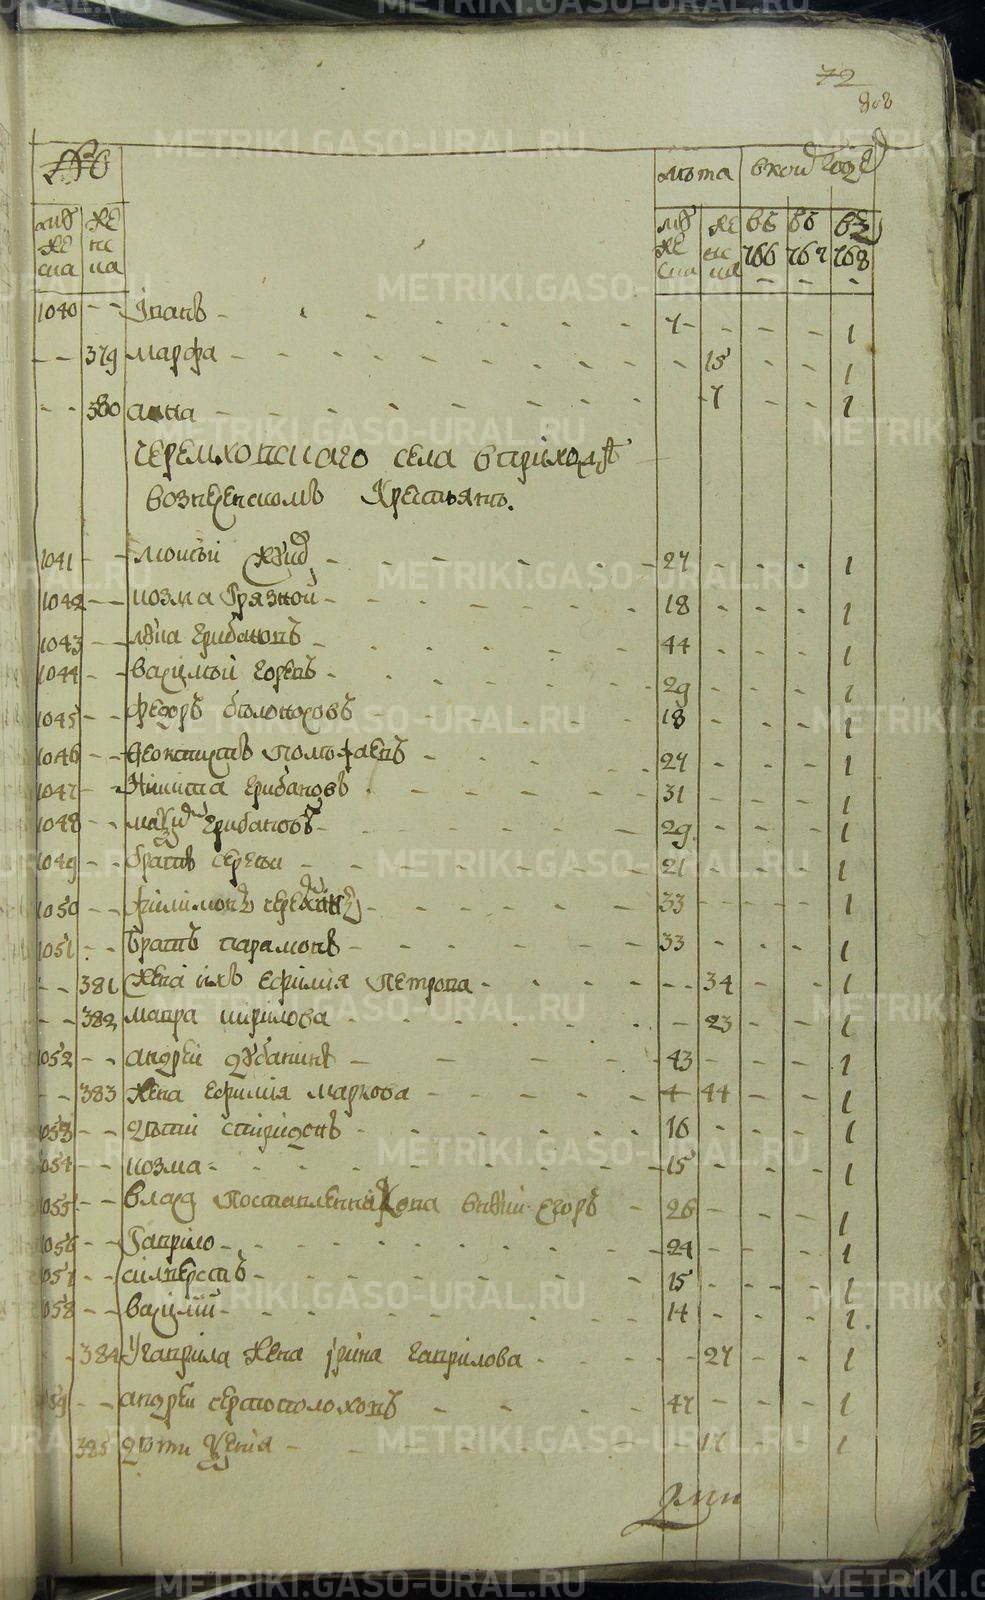 72
№
лѣта в коихъ годѣ
муже ска
же нс ка
муже ска
же нс ка
въ 766
въ 767
въ 768
1040 - - Іванъ - 7 - - - 1
- - 379 марфа - - 15 - - 1
- - 380 анна - - 7 - - 1
черемховскаго села в приходѣ
вознесенскомъ крестьянъ.
1041 - - моисѣй - 27 - - - 1
1042 - - козма Грязной - 18 - - - 1
1043 - - лука грибановъ - 44 - - - 1
1044 - - василѣй горевъ - 29 - - - 1
1045 - - федоръ бѣлоносовъ - 18 - - - 1
1046 - - феоктистъ - 27 - - - 1
1047 - - Никита грибановъ - 31 - - - 1
1048 - - грибановъ - 29 - - - 1
1049 - - братъ сергѣи - 21 - - - 1
1050 - - филимонъ - 33 - - - 1
1051 - - братъ парамонъ - 33 - - - 1
- - 381 жена ихъ ефимия петрова - - - 34 - - 1
- - 382 мавра кирилова - - 23 - - 1
1052 - - андреи - 43 - - - 1
- - 383 жена ефимия маркова - 44 - - 1
1053 - - дѣти спиридонъ - 16 - - - 1
1054 - - козма - 15 - - - 1
1055 - - егоръ - 26 - - - 1
1056 - - Гаврило - 24 - - - 1
1057 - - силвестръ - 15 - - - 1
1058 - - василий - 14 - - - 1
- - 384 Угаврила жена ирина гаврилова - - 27 - - 1
1059 - - андреи - 47 - - - 1
385 дѣти - - 17 - - 1